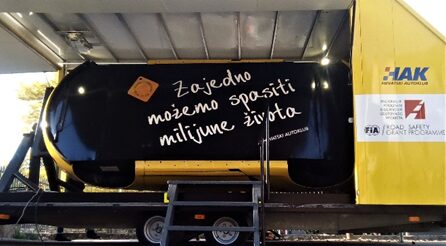 Zajedno
možemo spasiti
milijune života
HRVATSKI AUTOKLUB
HAK
HRVATSKI AUTOKLUB
FIA
ROAD SAFETY
GRANT PROGRAMME